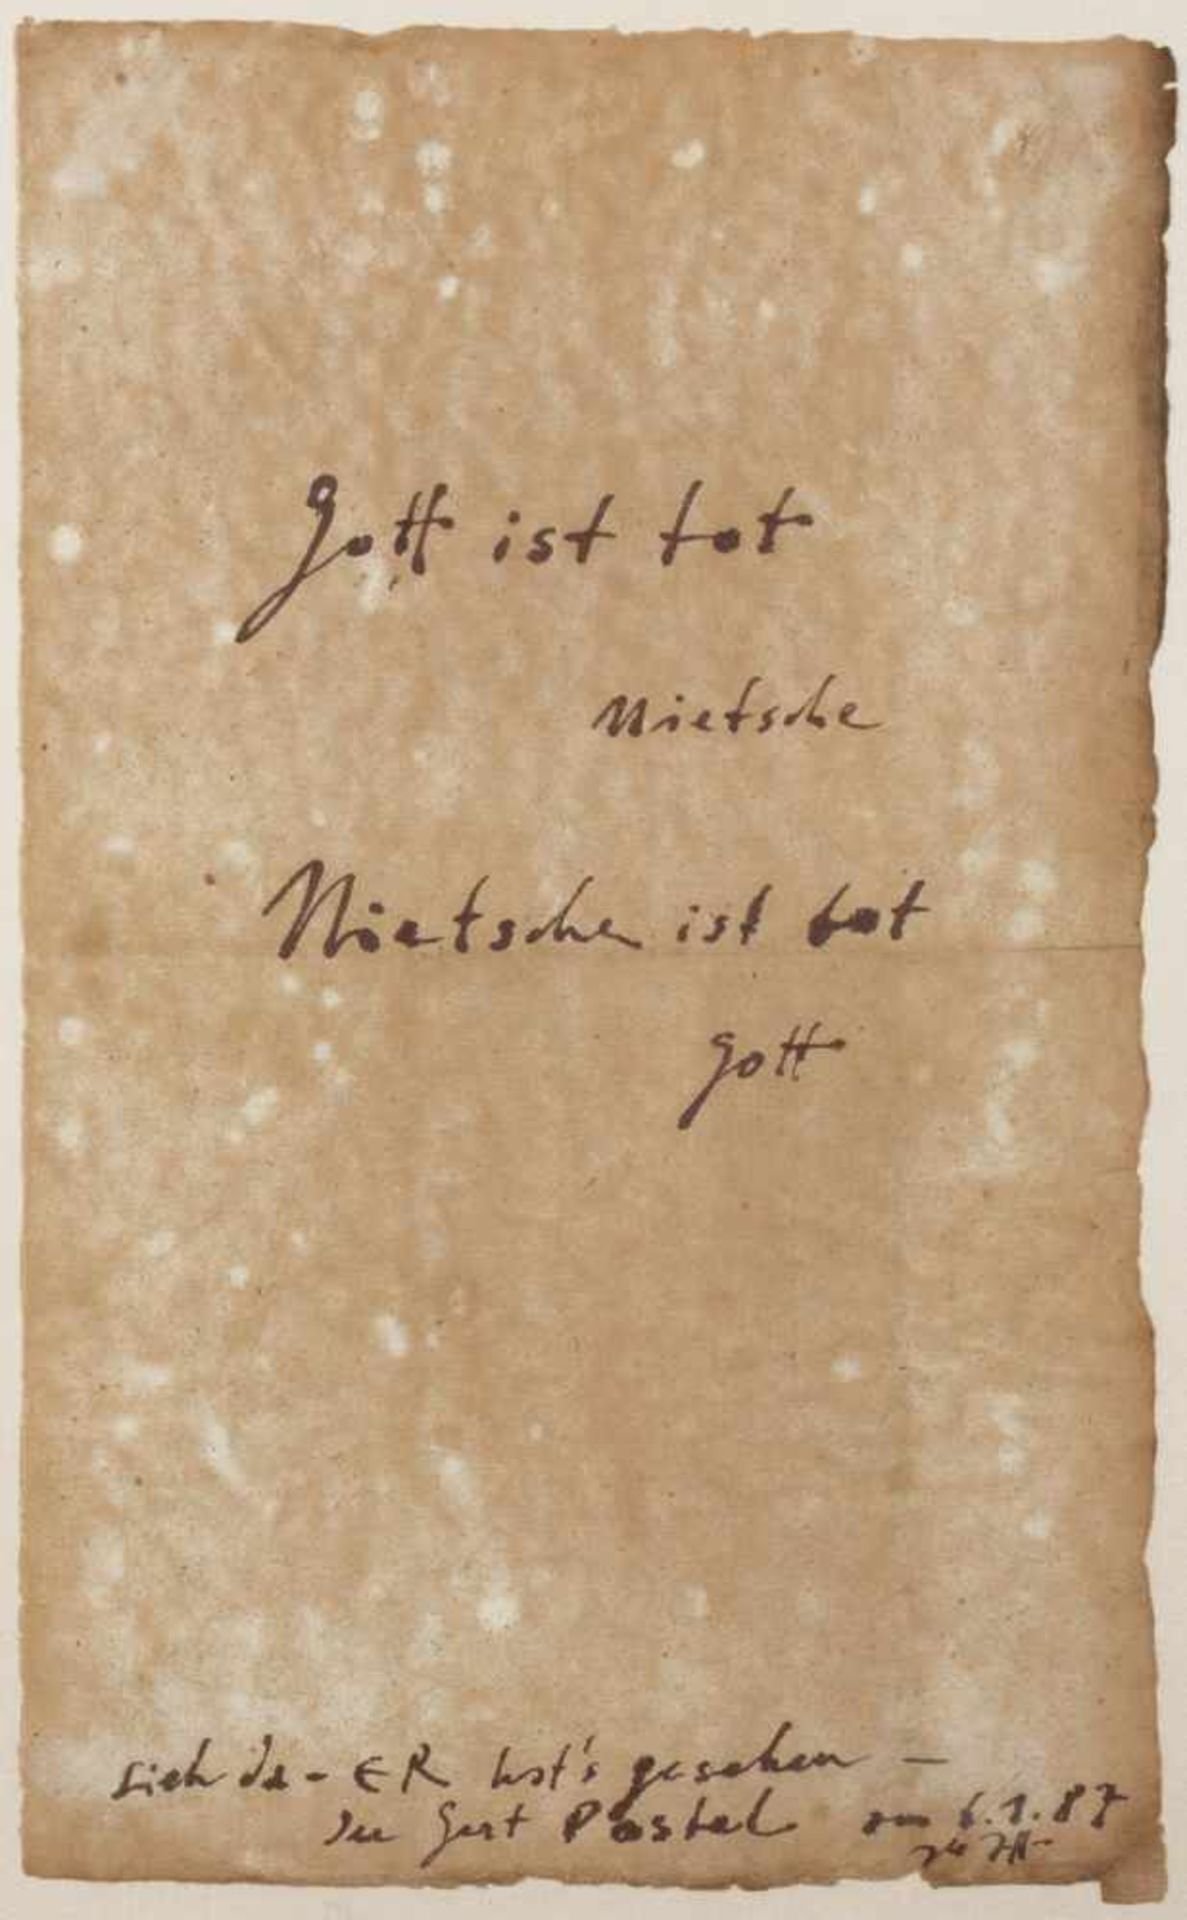 Gott ist tot
Nietsche
Nietsche ist tot
Gott
sieh da - ER hat's gesehen -
Gert Postel am 6.1.87